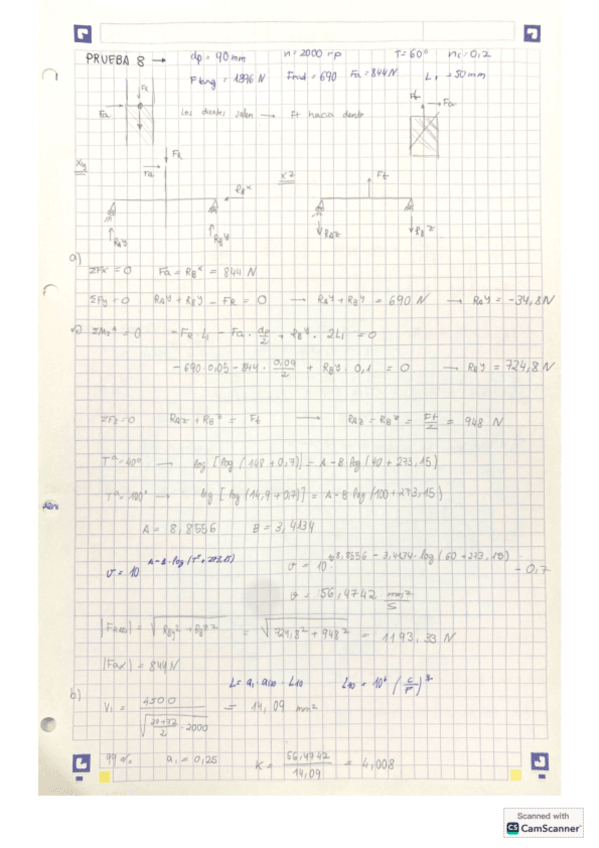 PRUEBA 8 → dp = 90 mm n = 2000 rp T = 60° nc = 0,2
Ftang = 1896 N Frad = 690 Fa = 844 N L1 = 50 mm
FR
Fa
Los dientes salen → Ft hacia dentro
Ft
Fa
Xy
FR
Fa
RB^x
RA^y
RB^y
XZ
Ft
RA^z
RB^z
a)
ΣFx = 0 Fa = RB^x = 844 N
ΣFy = 0 RA^y + RB^y - FR = 0 → RA^y + RB^y = 690 N → RA^y = -34,8 N
= 0 -FR · L1 - Fa · dp/2 + RB^y · 2L1 = 0
-690 · 0,05 - 844 · 0,09/2 + RB^y · 0,1 = 0 → RB^y = 724,8 N
ΣFz = 0 RAz + RB^z = Ft → RAz = RB^z = Ft/2 = 948 N
T^a = 40° → log [log (148 + 0,7)] = A - B log (40 + 273,15)
T^a = 100° → log [log (14,9 + 0,7)] = A - B log (100 + 273,15)
A = 8,8556 B = 3,4134
υ = 10^(A - B · log (T^a + 273,15)) υ = 10^(8,8556 - 3,4134 · log (60 + 273,15)) - 0,7
υ = 56,4742 mm²/s
|FRAD| = √(RBy² + RBz²) = √(724,8² + 948²) = 1193,33 N
|Fax| = 844 N
L = a1 · a · L10 L10 = 10⁶ (C/P)³
b)
V1 = 4500 / √( /2 · 2000) = 14,09 mm²
99 % a1 = 0,25 K = 56,4742/14,09 = 4,008
Scanned with
CS CamScanner